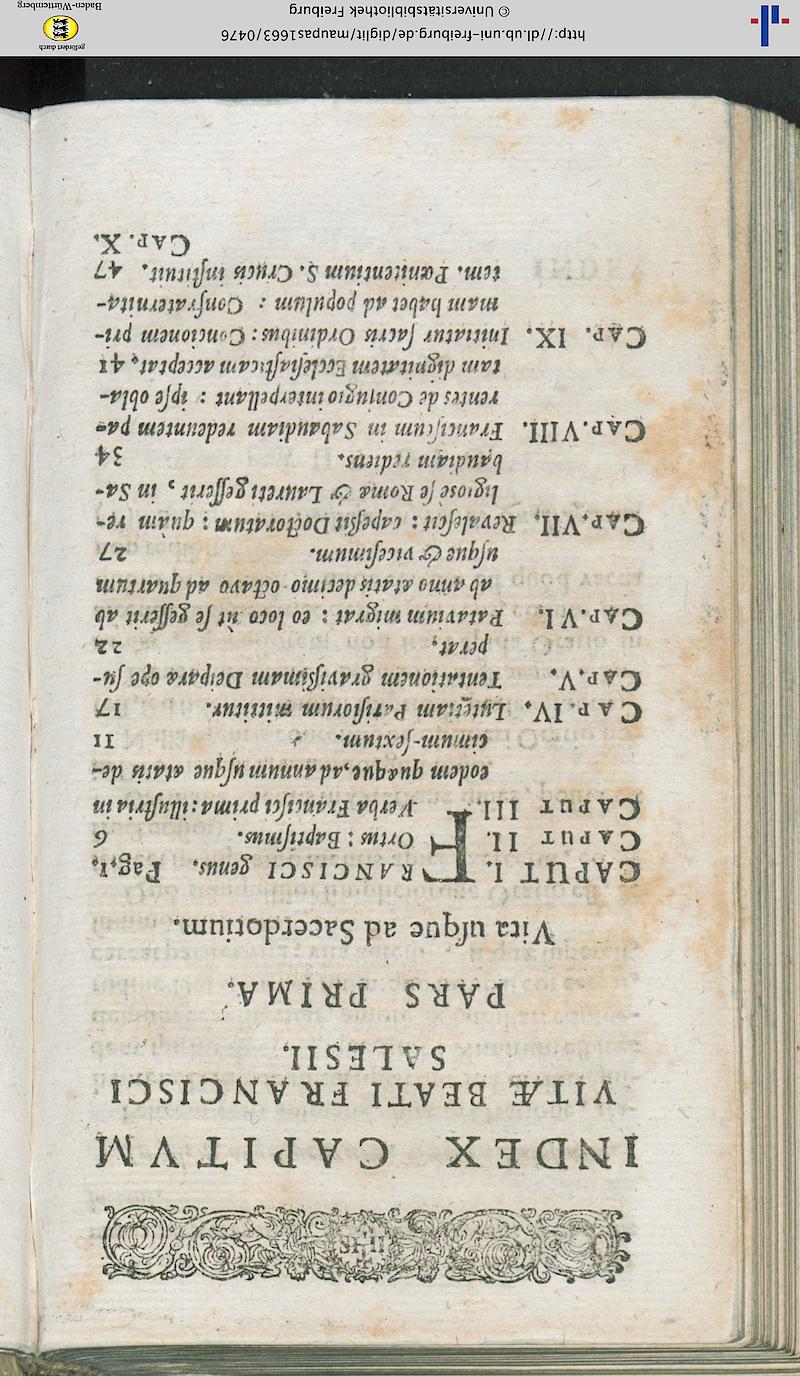 INDEX CAPITVM
VITÆ BEATI FRANCISCI
SALESII.
PARS PRIMA.
Vita uſque ad Sacerdotium.
CAPUT I. FRANCISCI genus. Pag. 1.
CAPUT II. Ortus: Baptiſmus. 6
CAPUT III. Verba Franciſci prima: illuſtria in
eodem quæque, ad annum uſque ætatis de-
cimum-ſextum. 11
CAP. IV. Lutetiam Pariſiorum mittitur. 17
CAP. V. Tentationem graviſſimam Deiparæ ope ſu-
perat. 22
CAP. VI. Patavium migrat: eo loco ut ſe geſſerit ab
ab anno ætatis decimo octavo ad quartum
uſque & viceſimum. 27
CAP. VII. Revaleſcit: capeſſit Doctoratum: quàm re-
ligiosè ſe Romæ & Laureti geſſerit, in Sa-
baudiam rediens. 34
CAP. VIII. Franciſcum in Sabaudiam redeuntem pa-
rentes de Conjugio interpellant: ipſe obla-
tam dignitatem Eccleſiaſticam acceptat. 41
CAP. IX. Initiatur ſacris Ordinibus: Concionem pri-
mam habet ad populum: Confraternita-
tem. Pœnitentium S. Crucis inſtituit. 47
CAP. X.
http://dl.ub.uni-freiburg.de/diglit/maupas1663/0476
© Universitätsbibliothek Freiburg
gefördert durch
Baden-Württemberg